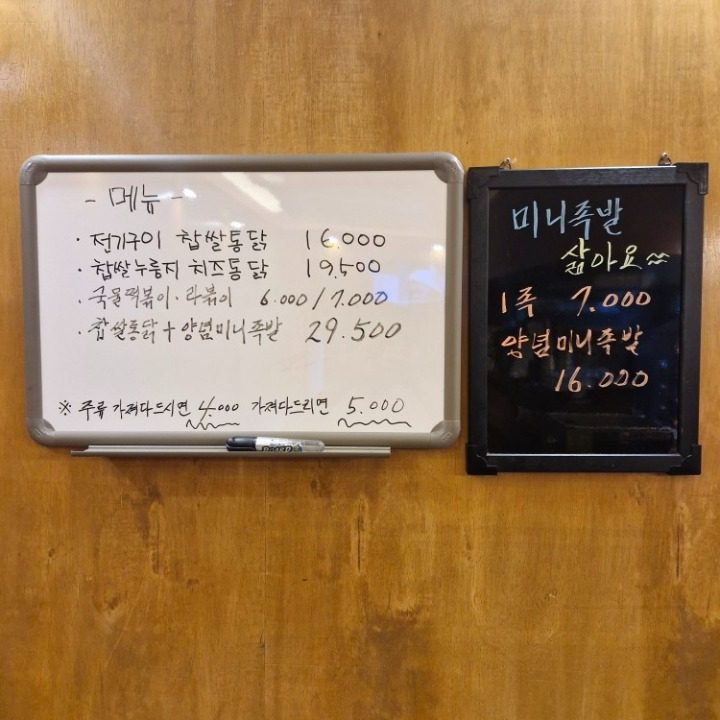 - 메뉴 -
· 전기구이 찹쌀통닭 16.000
· 찹쌀누룽지 치즈통닭 19,500
· 국물떡볶이·라볶이 6.000/7.000
· 찹쌀통닭+양념미니족발 29.500
※ 주류 가져다드시면 4.000 가져다드리면 5.000
미니족발
삶아요~
1족 7.000
양념미니족발
16.000